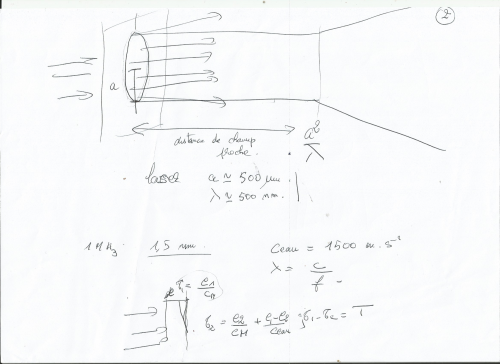 2
a
distance de champ
proche.
a²
λ
laser a ≃ 500 µm.
λ ≃ 500 nm.
1 MHz 1,5 mm
Ceau = 1500 m.s⁻¹
λ = c/f
e
τ₁ = e₁/cH
τ₂ = e₂/cH + (e₁-e₂)/ceau } τ₁-τ₂ = T